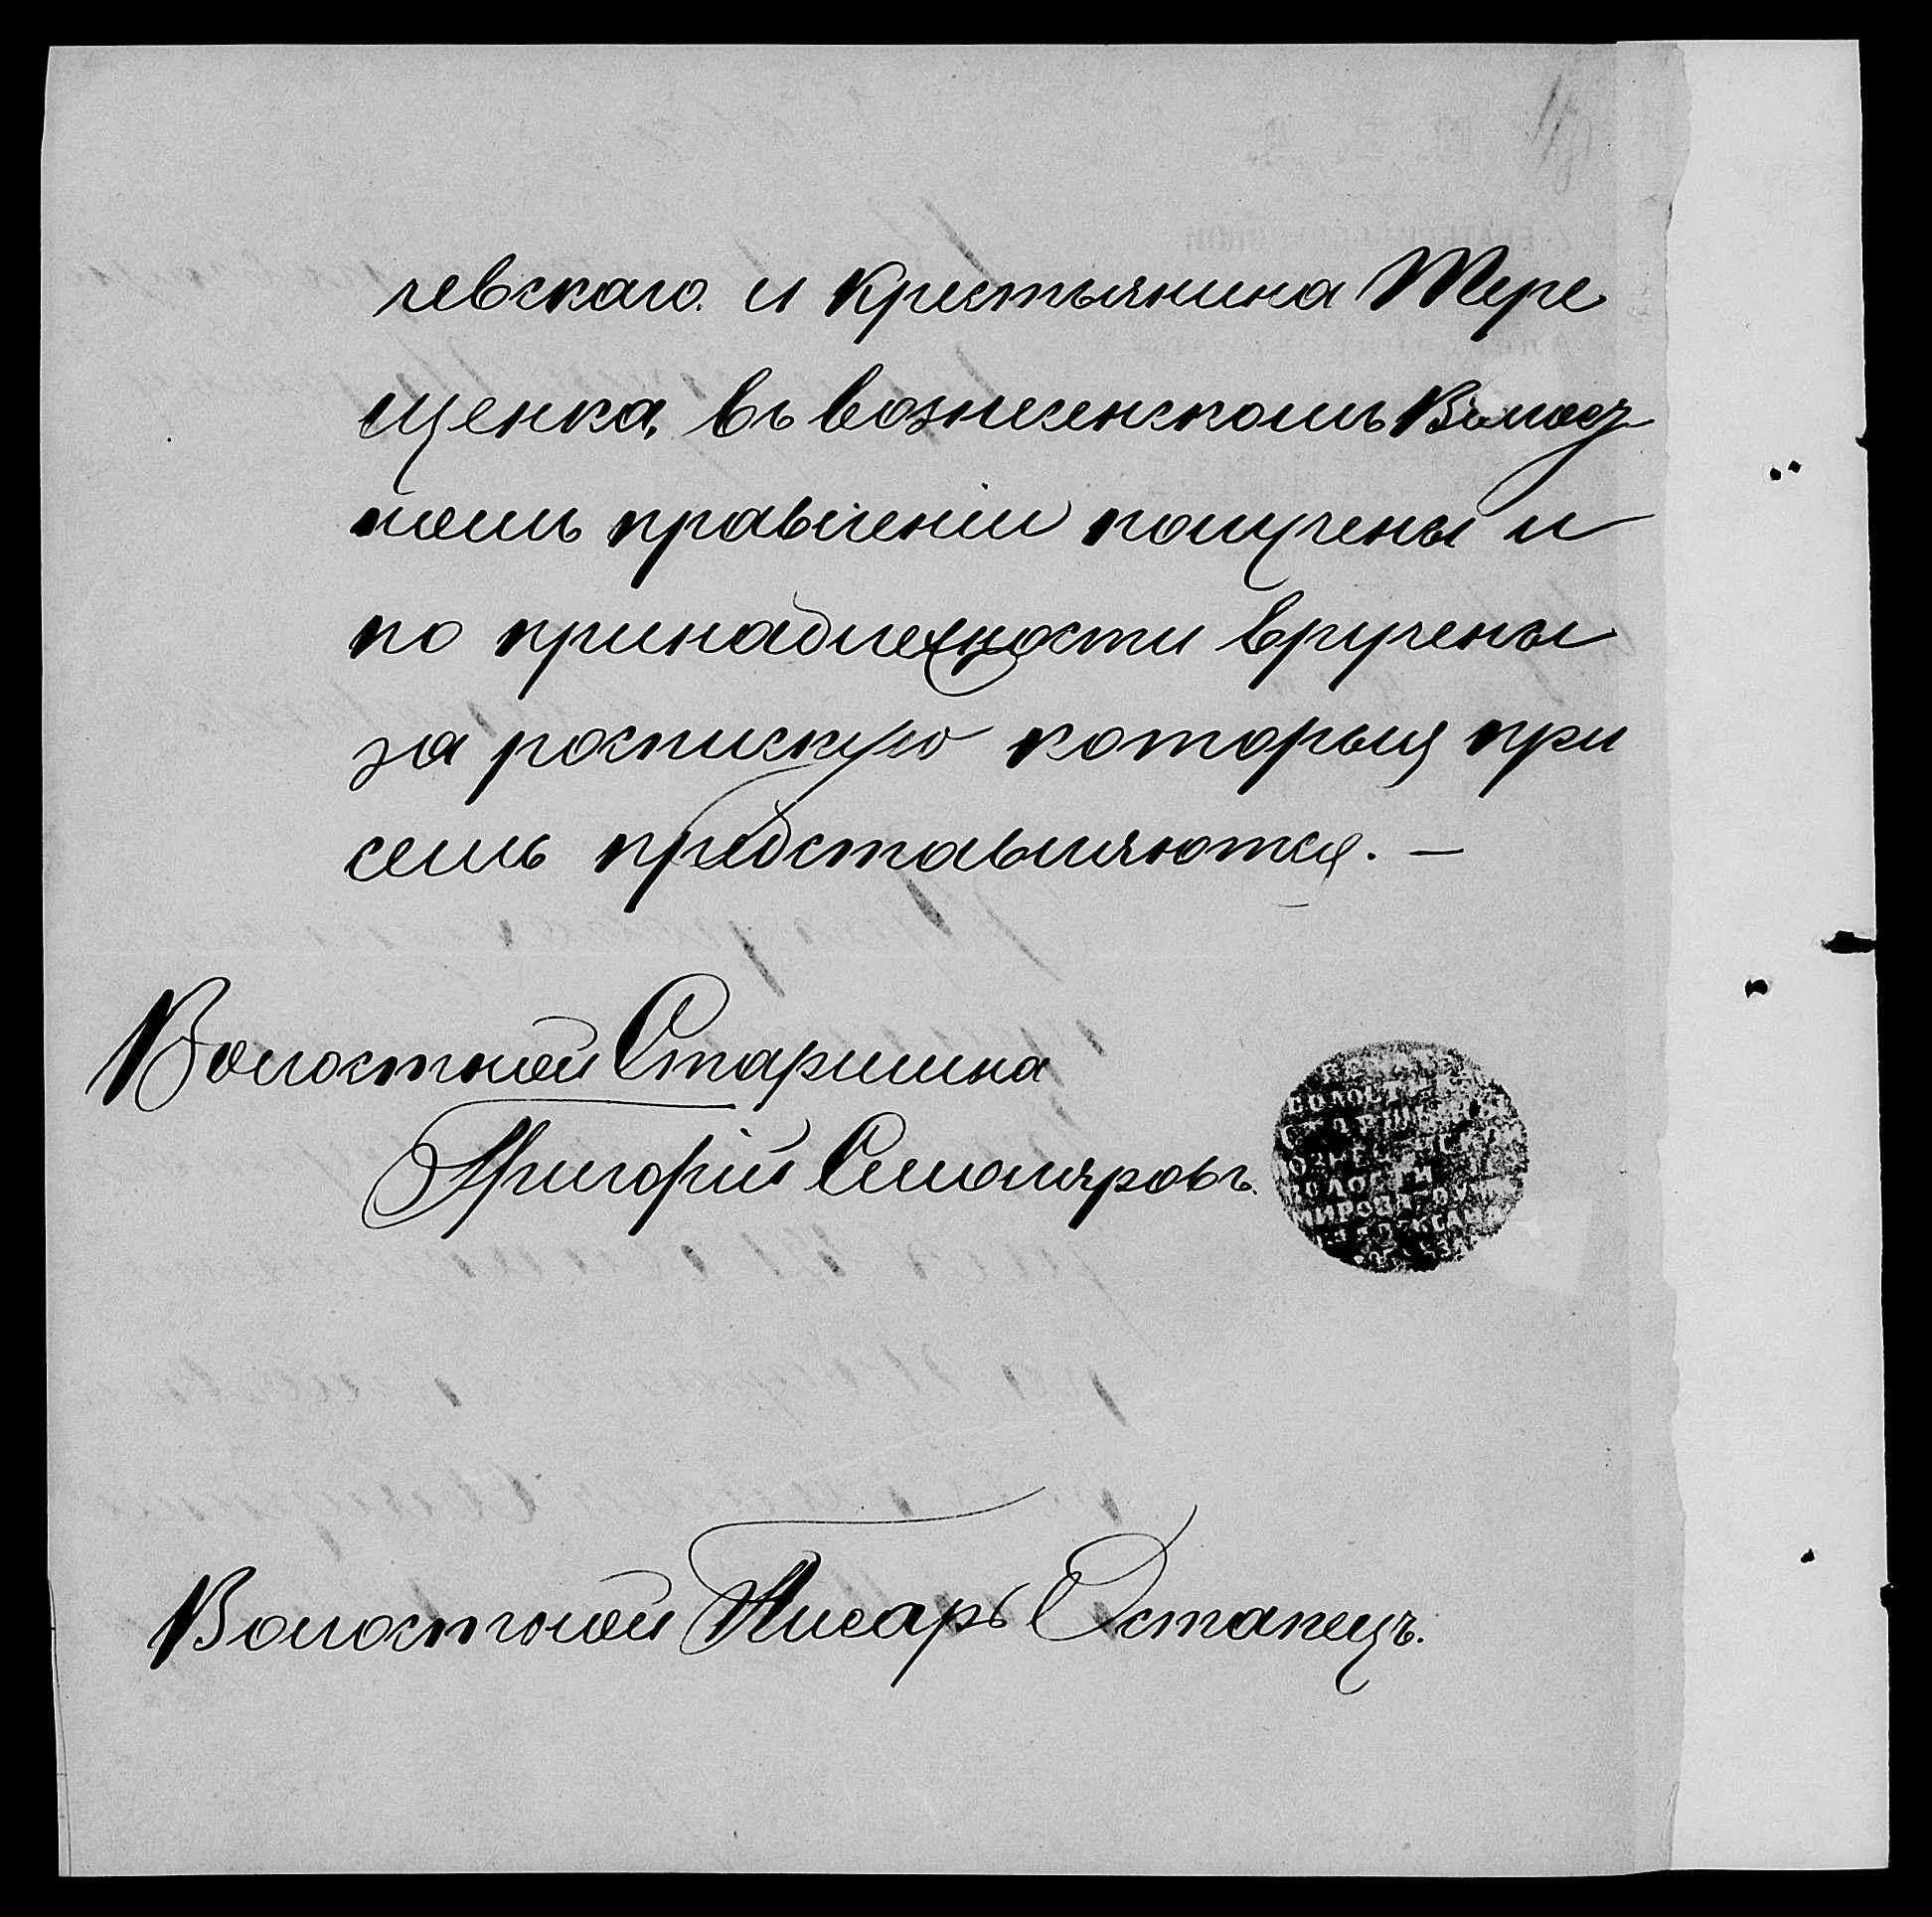 чевскаго и Крестьянина Тере
щенка, въ вознесенскомъ Волост
номъ правленіи получены и
по принадлежности вручены
за роспискую которыя при
семъ представляются. —
Волостной Старшина
Григорій Смоляровъ.
ВОЛОСТ
СТАРШИНЫ
ВОЛОСТИ
Волостной Писарь Остапецъ.